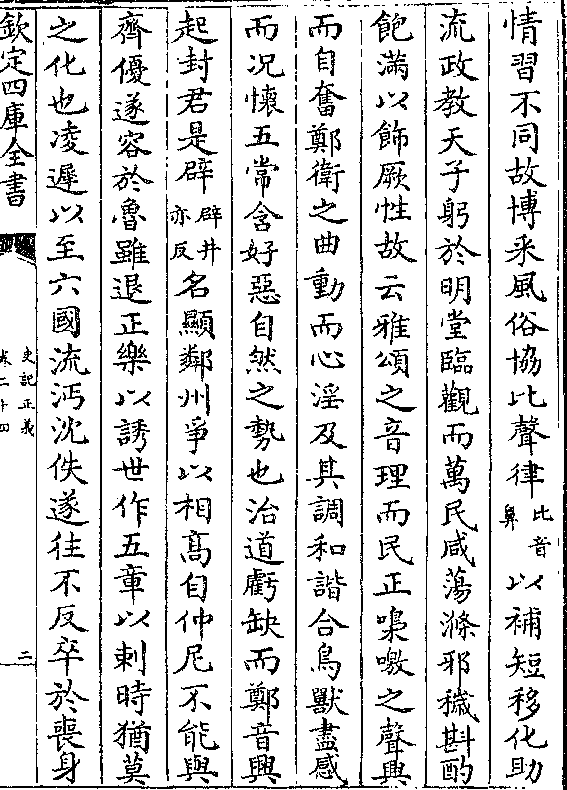 情習不同故博采風俗協比聲律比音鼻以補短移化助
流政教天子躬於明堂臨觀而萬民咸蕩滌邪穢斟酌
飽滿以飾厥性故云雅頌之音理而民正嘄噭之聲興
而自奮鄭衛之曲動而心淫及其調和諧合鳥獸盡感
而况懷五常含好惡自然之勢也治道虧缺而鄭音興
起封君是辟辟井亦反名顯鄰州爭以相髙自仲尼不能與
齊優遂容於魯雖退正樂以誘世作五章以刺時猶莫
之化也凌遲以至六國流沔沈佚遂往不反卒於喪身
欽定四庫全書
史記正義
卷二十四
二